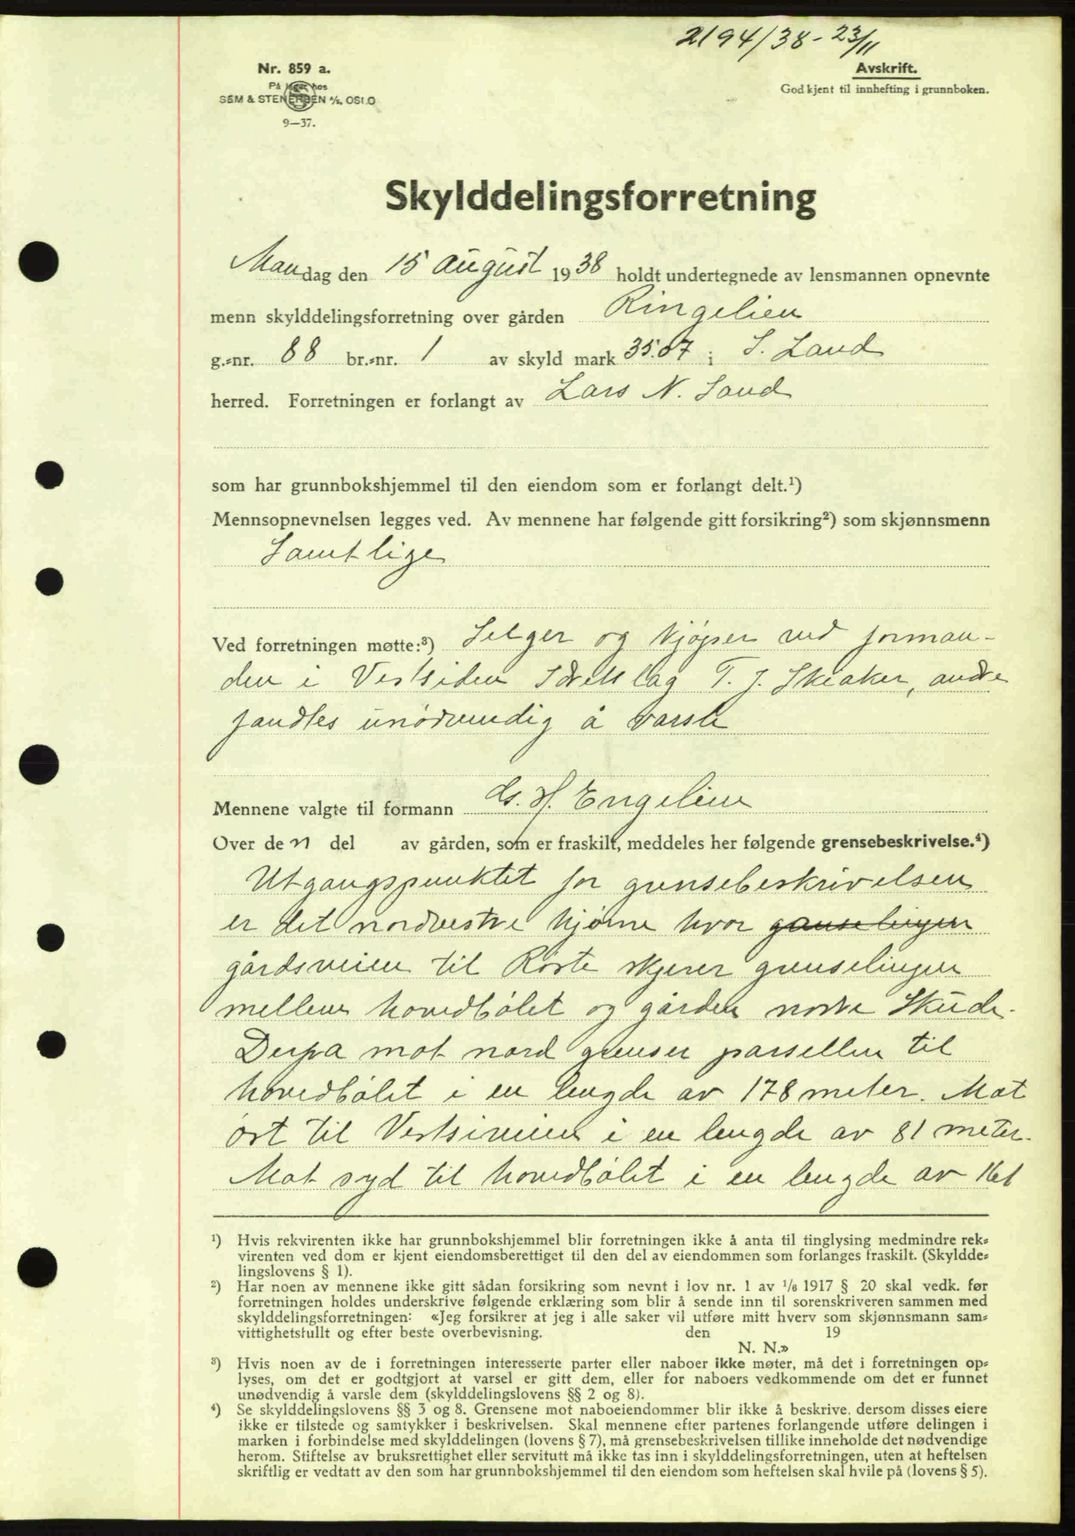 2194/38-23/11
Nr. 859 a.
På lager hos
SEM & STENERSEN A/S, OSLO
9—37.
Avskrift.
Godkjent til innhefting i grunnboken.
Skylddelingsforretning
Mandag den 15 august 1938 holdt undertegnede av lensmannen opnevnte
menn skylddelingsforretning over gården Ringelien
g.-nr. 88 br.-nr. 1 av skyld mark 35.07 i S. Land
herred. Forretningen er forlangt av Lars N. Sand
som har grunnbokshjemmel til den eiendom som er forlangt delt.¹)
Mennsopnevnelsen legges ved. Av mennene har følgende gitt forsikring²) som skjønnsmenn
Samtlige
Ved forretningen møtte:³) Selger og kjøper ved forman-
den i Vestsiden Idretslag T. J. Skiaker, andre
fandtes unødvendig å varsle
Mennene valgte til formann Hs. H. Engelien
Over den del av gården, som er fraskilt, meddeles her følgende grensebeskrivelse.⁴)
Utgangspunktet for grensebeskrivelsen
er det nordvestre hjørne hvor
gårdsveien til Røste skjerer grenselinjen
mellem hovedbølet og gården nordre Skude.
Derfra mot nord grenser parsellen til
hovedbølet i en lengde av 178 meter. Mot
øst til Vestsiveien i en lengde av 81 meter.
Mot syd til hovedbølet i en lengde av 161
¹) Hvis rekvirenten ikke har grunnbokshjemmel blir forretningen ikke å anta til tinglysing medmindre rek-
virenten ved dom er kjent eiendomsberettiget til den del av eiendommen som forlanges fraskilt. (Skyldde-
lingslovens § 1).
²) Har noen av mennene ikke gitt sådan forsikring som nevnt i lov nr. 1 av 1/6 1917 § 20 skal vedk. før
forretningen holdes underskrive følgende erklæring som blir å sende inn til sorenskriveren sammen med
skylddelingsforretningen: «Jeg forsikrer at jeg i alle saker vil utføre mitt hverv som skjønnsmann sam-
vittighetsfullt og efter beste overbevisning. den 19
N. N.»
³) Hvis noen av de i forretningen interesserte parter eller naboer ikke møter, må det i forretningen op-
lyses, om det er godtgjort at varsel er gitt dem, eller for naboers vedkommende om det er funnet
unødvendig å varsle dem (skylddelingslovens §§ 2 og 8).
⁴) Se skylddelingslovens §§ 3 og 8. Grensene mot naboeiendommer blir ikke å beskrive, dersom disses eiere
ikke er tilstede og samtykker i beskrivelsen. Skal mennene efter partenes forlangende utføre delingen i
marken i forbindelse med skylddelingen (lovens § 7), må grensebeskrivelsen tillike inneholde det nødvendige
herom. Stiftelse av bruksrettighet eller servitutt må ikke tas inn i skylddelingsforretningen, uten at heftelsen
skriftlig er vedtatt av den som har grunnbokshjemmel til den eiendom som heftelsen skal hvile på (lovens § 5).